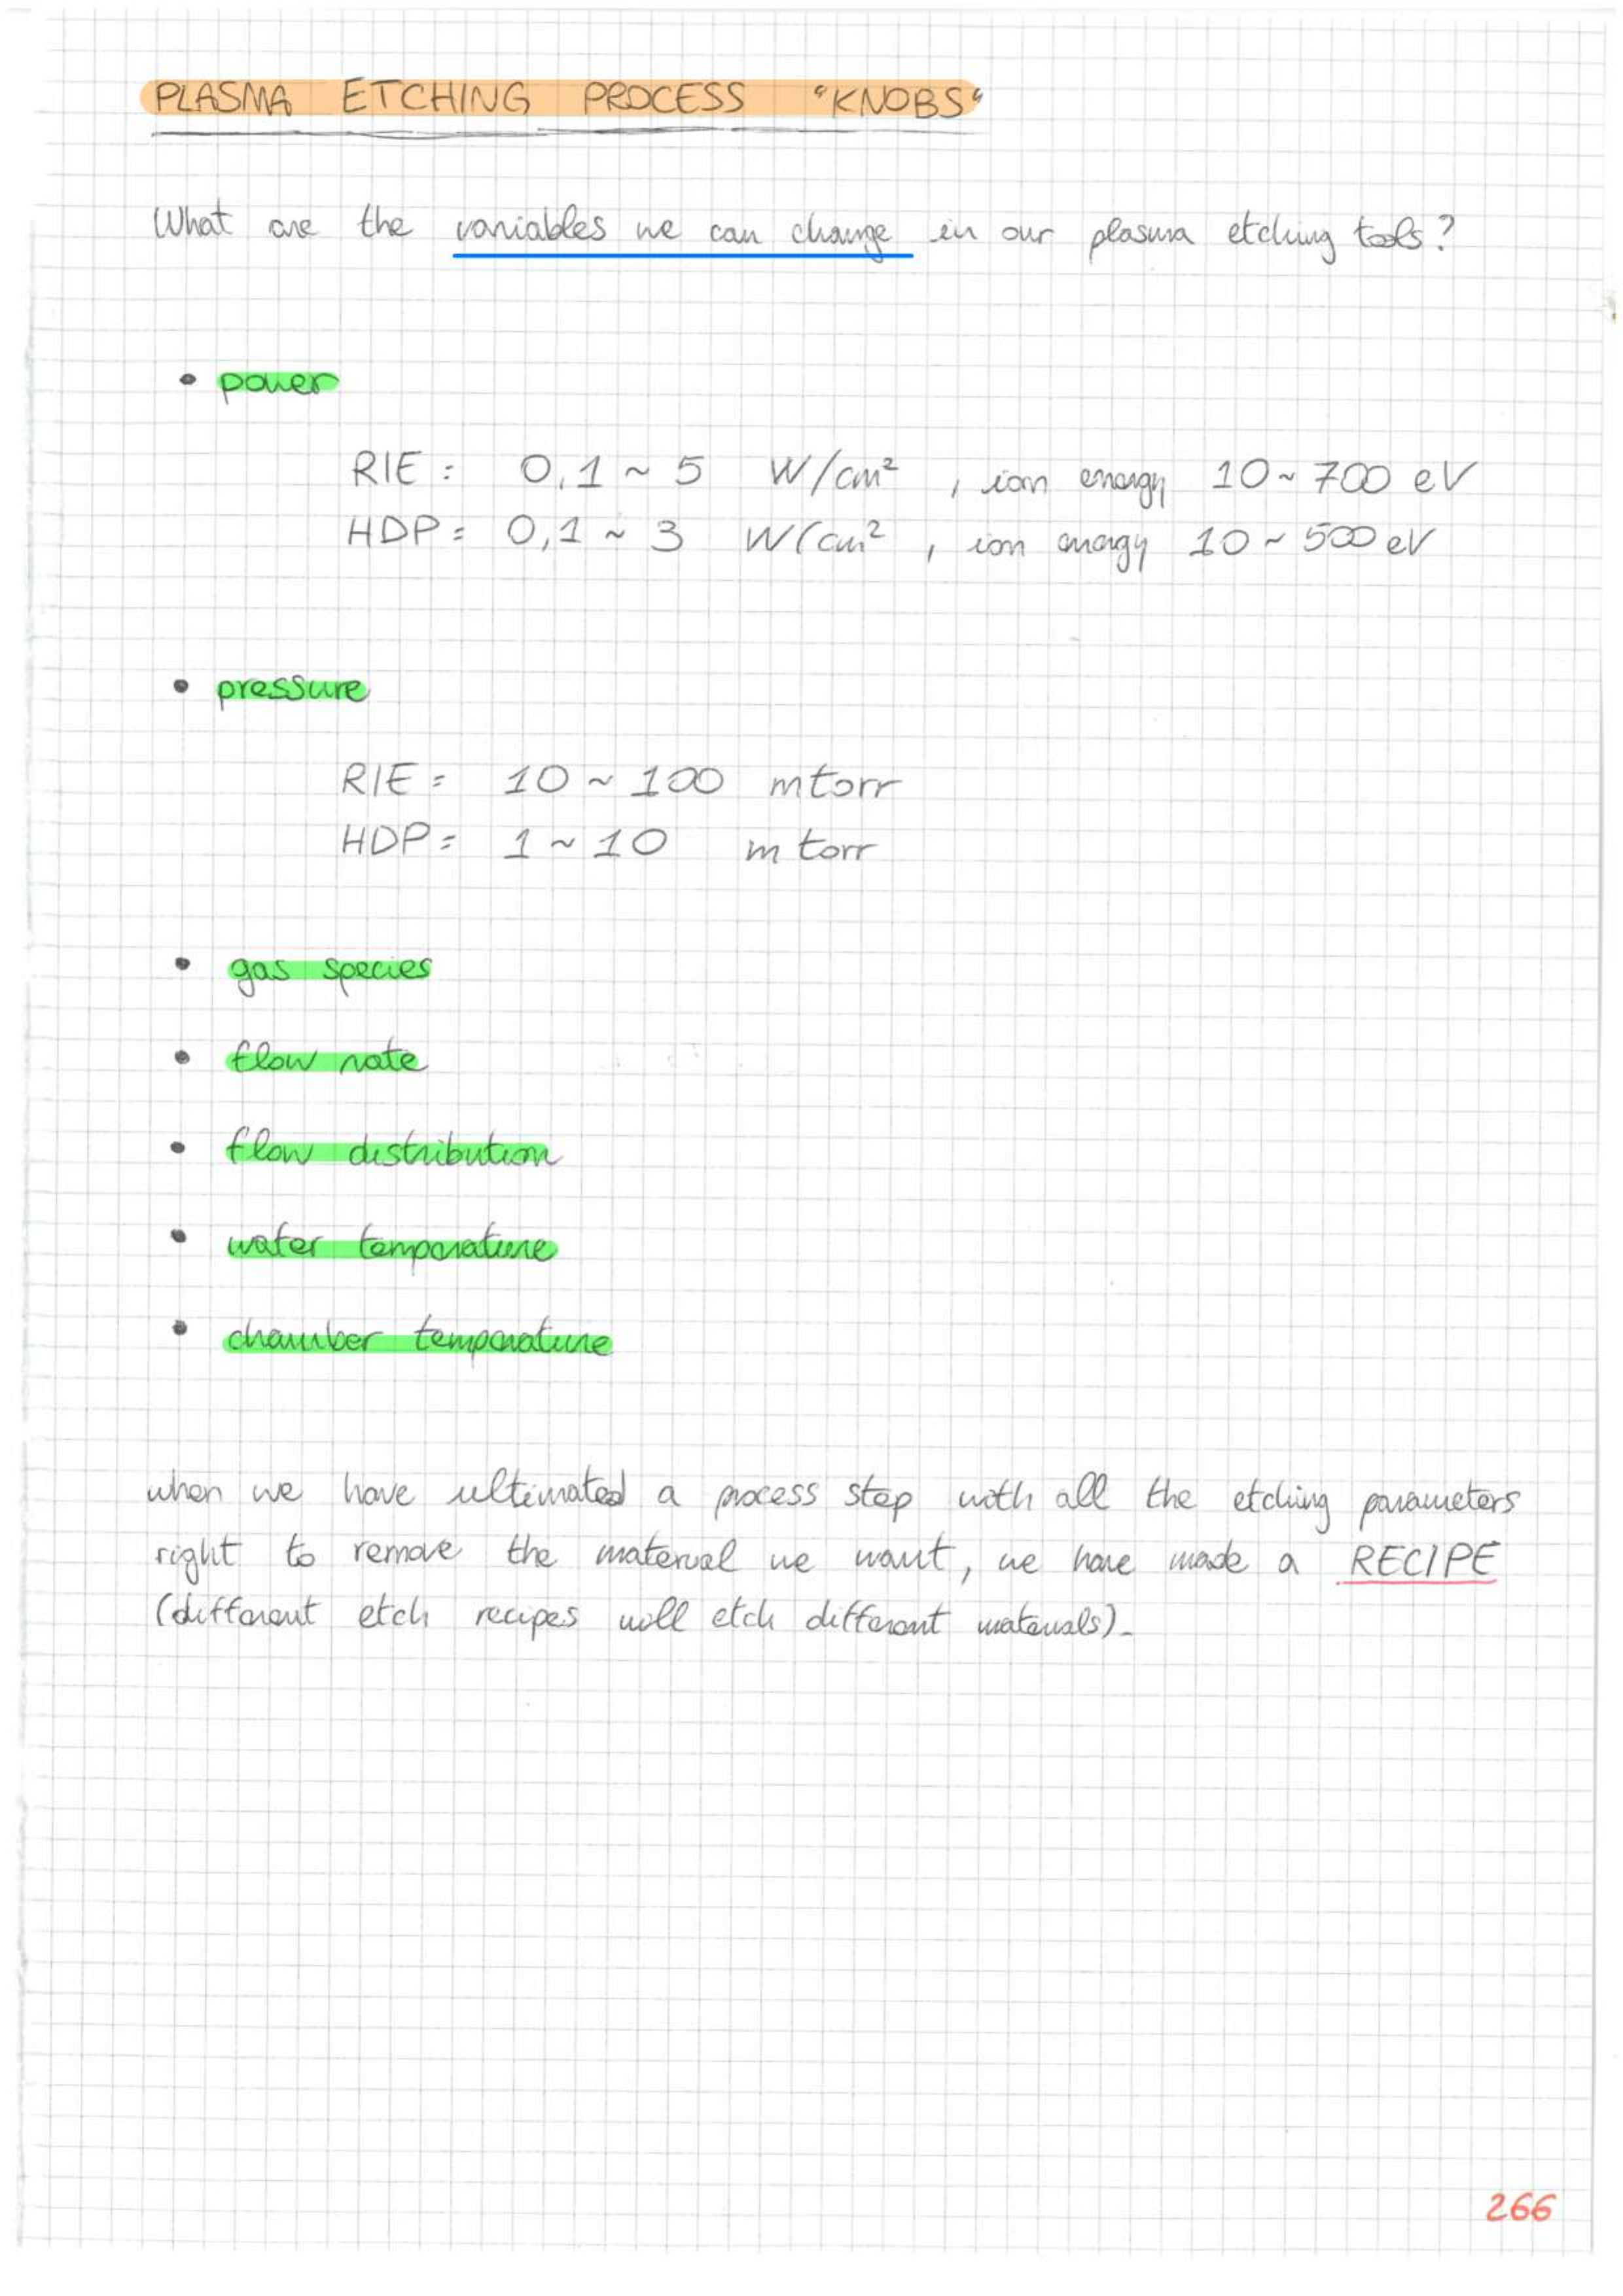 PLASMA ETCHING PROCESS "KNOBS"
What are the variables we can change in our plasma etching tools?
• power
RIE: 0,1 ~ 5 W/cm² , ion energy 10 ~ 700 eV
HDP: 0,1 ~ 3 W/cm² , ion energy 10 ~ 500 eV
• pressure
RIE: 10 ~ 100 mtorr
HDP: 1 ~ 10 mtorr
• gas species
• flow rate
• flow distribution
• water temperature
• chamber temperature
when we have ultimated a process step with all the etching parameters
right to remove the material we want, we have made a RECIPE
(different etch recipes will etch different materials).
266